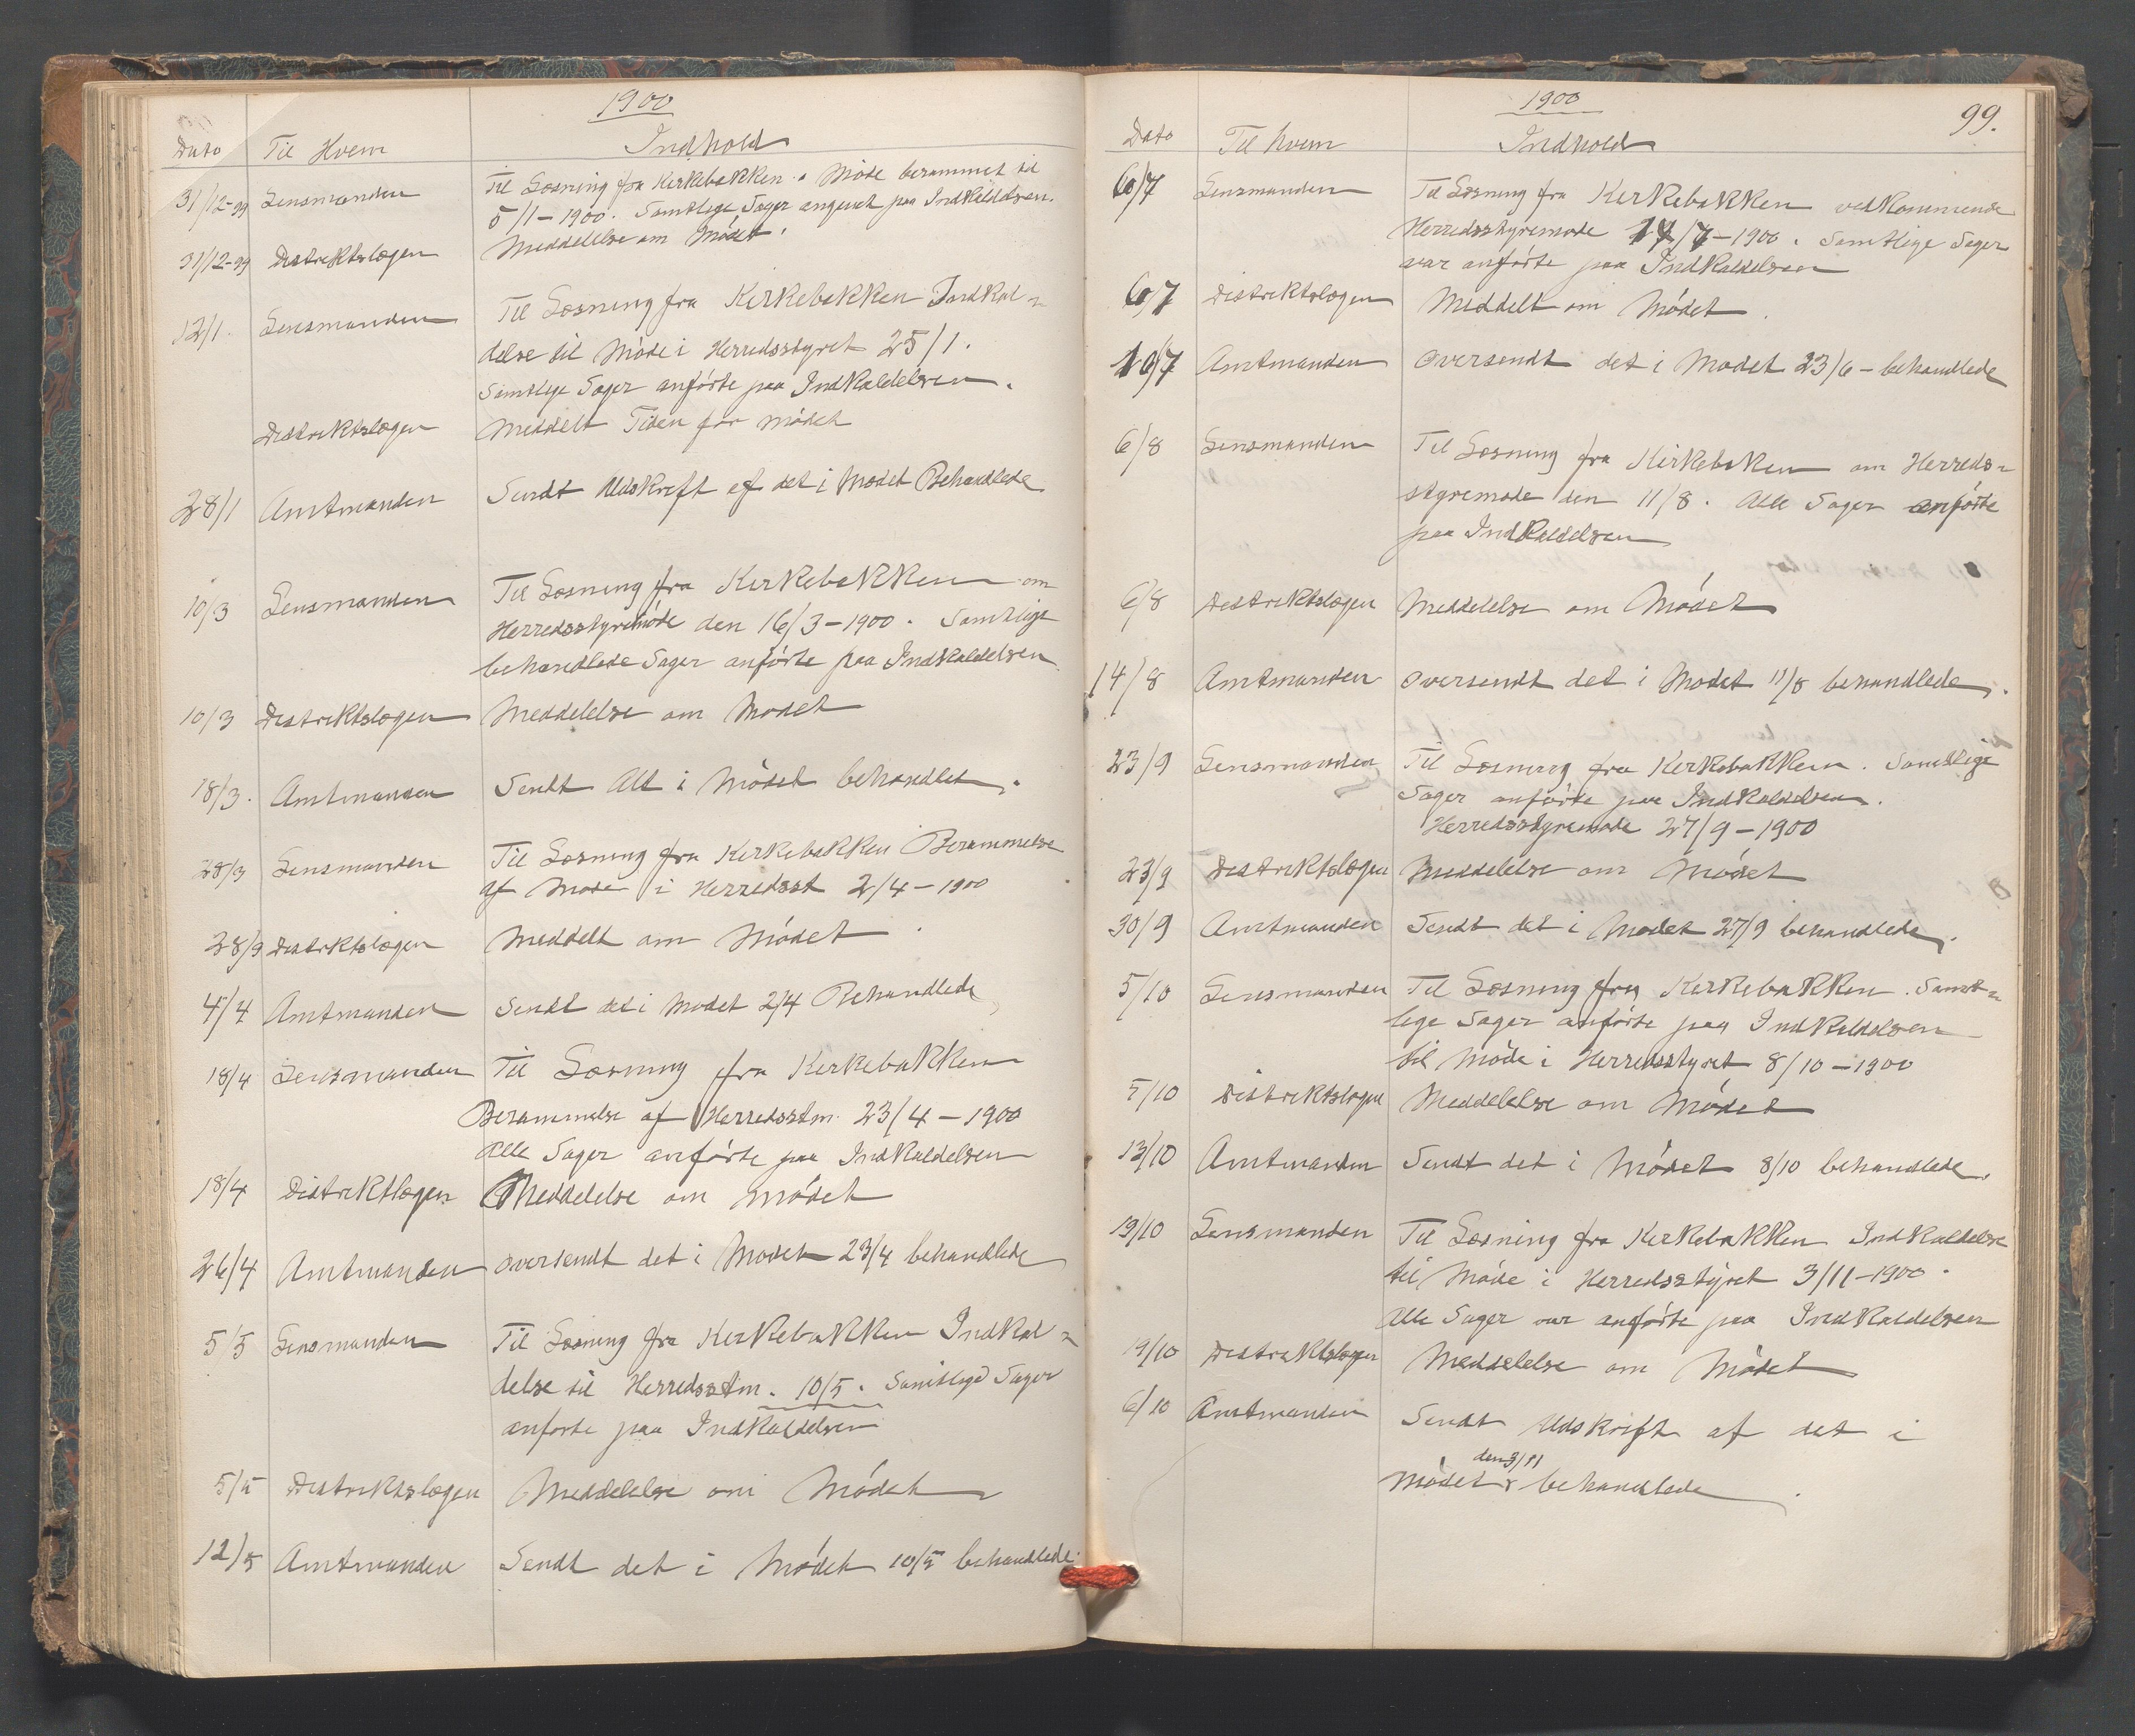 1900
Dato Til Hvem Indhold
31/12-99 Lensmanden Til Læsning fra Kirkebakken. Møde berammet til
5/1-1900. Samtlige Sager angivet paa Indkaldelsen.
31/12-99 Distriktslægen Meddelelse om Mödet.
12/1. Lensmanden Til Læsning fra Kirkebakken Indkal-
delse til Möde i Herredsstyret 25/1.
Samtlige Sager anförte paa Indkaldelsen.
Distriktslægen Meddelt Tiden for mödet
28/1 Amtmanden Sendt Udskrift af det i Mødet Behandlede
10/3 Lensmanden Til Læsning fra Kirkebakken om
Herredsstyremöde den 16/3-1900. Samtlige
behandlede Sager anförte paa Indkaldelsen
10/3 Distriktslægen Meddelelse om Modet
18/3. Amtmanden Sendt Alt i Mödet behandlet.
28/3 Lensmanden Til Læsning fra Kirkebakken Berammelse
af Møde i Herredsst 2/4-1900
28/3 Distriktslægen Meddelt om Mödet
4/4 Amtmanden Sendt det i Modet 2/4 Behandlede
18/4 Lensmanden Til Læsning fra Kirkebakken
Berammelse af Herredsstm. 23/4-1900
Alle Sager anförte paa Indkaldelsen
18/4 Distriktlægen Meddelelse om mödet
26/4 Amtmanden oversendt det i Modet 23/4 behandlede
5/5 Lensmanden Til Læsning fra Kirkebakken Indkal-
delse til Herredsstm. 10/5. Samtlige Sager
anförte paa Indkaldelsen
5/5 Distriktslægen Meddelelse om Mödet
12/5 Amtmanden Sendt det i Mödet 10/5 behandlede.
1900
99.
Dato Til hvem Indhold
6/7 Lensmanden Til Læsning fra Kirkebakken vedkommende
Herredsstyremøde /7-1900. Samtlige Sager
var anförte paa Indkaldelsen
6/7 Distriktslægen Meddelt om Mödet.
10/7 Amtmanden Oversendt det i Modet 23/6 - behandlede
6/8 Lensmanden Til Læsning fra Kirkebakken om Herreds-
styremøde den 11/8. Alle Sager anförte
paa Indkaldelsen
6/8 Distriktslægen Meddelelse om Mödet
14/8 Amtmanden oversendt det i Modet 11/8 behandlede.
23/9 Lensmanden Til Læsning fra Kirkebakken. Samtlige
Sager anförte paa Indkaldelsen.
Herredsstyremøde 27/9-1900
23/9 Distriktslægen Meddelelse om Mödet
30/9 Amtmanden Sendt det i Mødet 27/9 behandlede.
5/10 Lensmanden Til Læsning fra Kirkebakken. Samt-
lige Sager anförte paa Indkaldelsen
til Möde i Herredsstyret 8/10-1900
5/10 Distriktslægen Meddelelse om Mödet
13/10 Amtmanden Sendt det i Mödet 8/10 behandlede.
19/10 Lensmanden Til Læsning fra Kirkebakken Indkaldelse
til Möde i Herredsstyret 3/11-1900.
Alle Sager var anförte paa Indkaldelsen
19/10 Distriktslægen Meddelelse om Mödet
6/10 Amtmanden Sendt Udskrift af det i
den 3/11
Mödet behandlede.